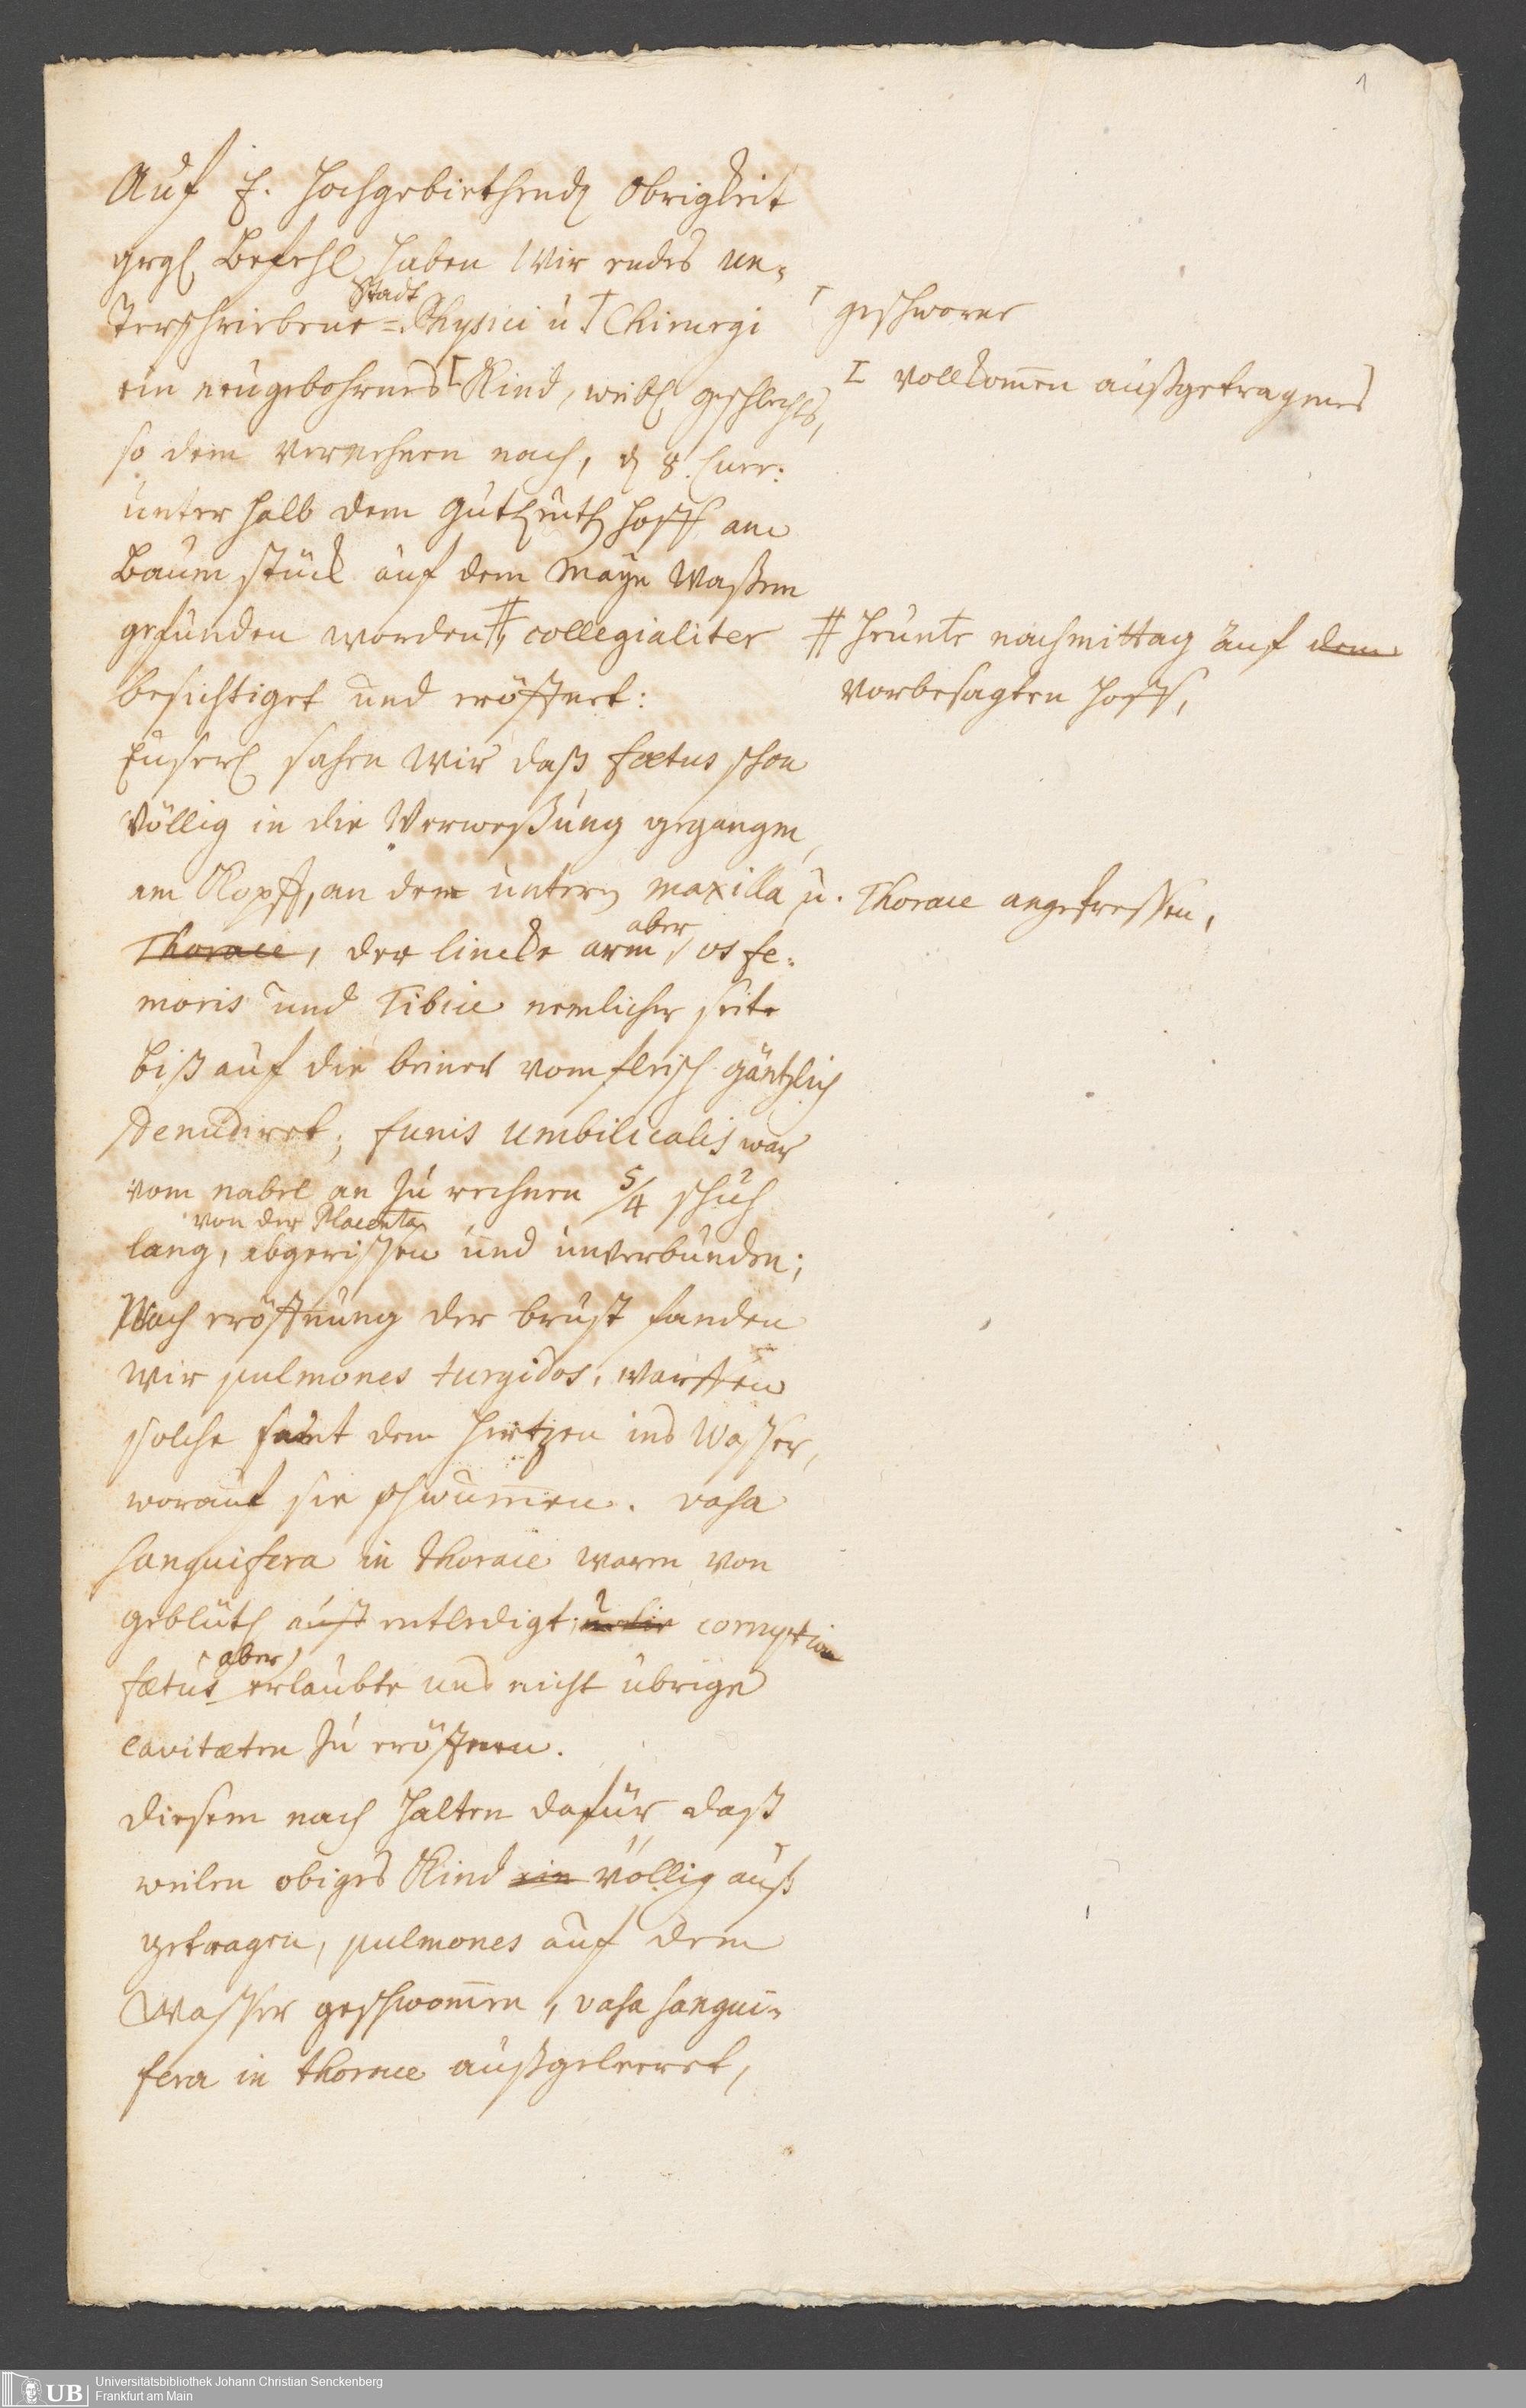 1
Auf E. Hochgebiethende Obrigkeit
grgl Befehl haben Wir endes un-
terschriebene Stadt=Physici u. † Chirurgi
† geschworne
ein neugebohrnes Kind, weibl geschlechts,
vollkom̅en außgetragenes
so dem vernehmen nach, d 8. Curr:
unter halb dem Gutleuth Hoff am
Baum stück auf dem Mayn Waßem
gefunden worden #, collegialiter
# Heunte nachmittag auf dem
vorbesagten Hoff,
besichtiget und eröffnet:
Euserl sahen Wir daß foetus schon
völlig in die Verweßung gegangen,
am Kopff, an dem untern maxilla u. Thorace angefressen,
Thorace, der lincke arm aber, os fe-
moris und Tibiae nemlicher seite
biß auf die beiner vom fleisch gäntzlich
denudiret; funis umbilicalis war
vom nabel an zu rechnen 5/4 schuh
lang, von der Placenta abgerissen und unverbunden;
Nach eröffnung der brust fanden
wir pulmones turgidos, warffen
solche samt dem Hertzen ins Wasser,
worauf sie schwum̅en. vasa
sanguifera in thorace waren von
geblüth auß entledigt; corruption
foetus aber erlaubte uns nicht übrige
cavitaeten zu eröffnen.
Diesem nach halten dafür daß
weilen obiges Kind ein völlig auß
getragen, pulmones auf dem
Wasser geschwom̅en, vasa sangui-
fera in thorace außgeleeret,
UB
Universitätsbibliothek Johann Christian Senckenberg
Frankfurt am Main